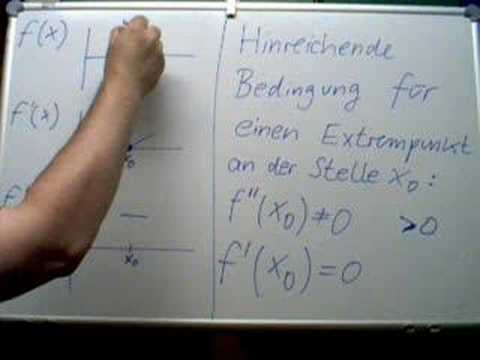 f(x)
f'(x)
x₀
f
x₀
Hinreichende
Bedingung für
einen Extrempunkt
an der Stelle x₀:
f''(x₀)≠0 >0
f'(x₀)=0